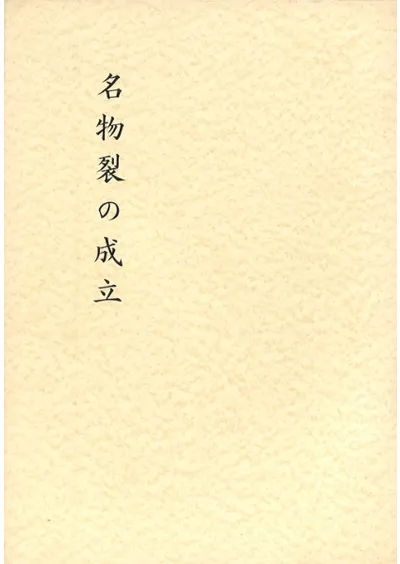 名物裂の成立